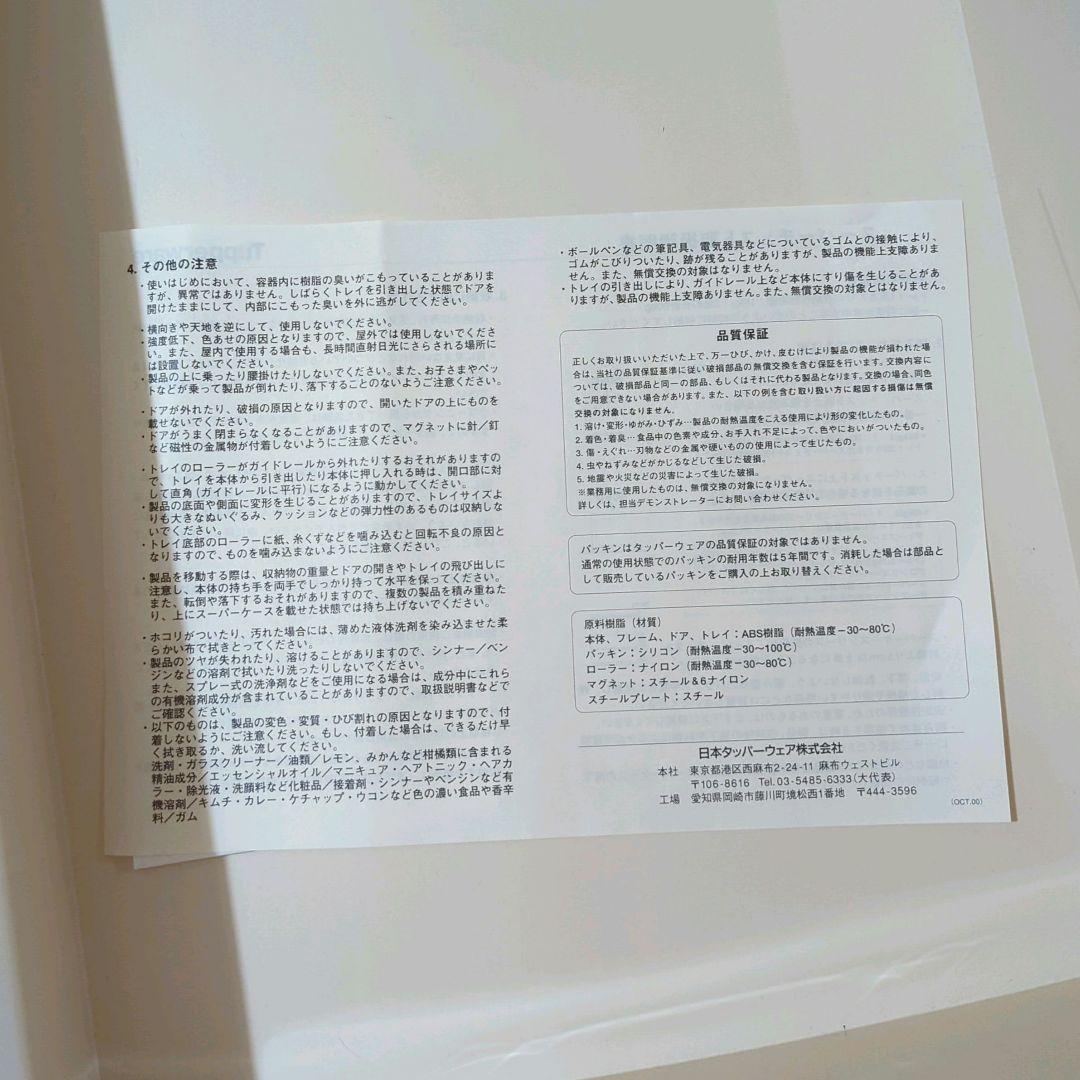 4. その他の注意
・使いはじめにおいて、容器内に樹脂の臭いがこもっていることがありま
すが、異常ではありません。しばらくトレイを引き出した状態でドアを
開けたままにして、内部にこもった臭いを外に逃がしてください。
・横向きや天地を逆にして、使用しないでください。
・強度低下、色あせの原因となりますので、屋外では使用しないでくださ
い。また、屋内で使用する場合も、長時間直射日光にさらされる場所に
は設置しないでください。
・製品の上に乗ったり腰掛けたりしないでください。また、お子さまやペッ
トなどが乗って製品が倒れたり、落下することのないようご注意ください。
・ドアが外れたり、破損の原因となりますので、開いたドアの上にものを
載せないでください。
・ドアがうまく閉まらなくなることがありますので、マグネットに針／釘
など磁性の金属物が付着しないようにご注意ください。
・トレイのローラーがガイドレールから外れたりするおそれがありますの
で、トレイを本体から引き出したり本体に押し入れる時は、開口部に対
して直角（ガイドレールに平行）になるように動かしてください。
・製品の底面や側面に変形を生じることがありますので、トレイサイズよ
りも大きなぬいぐるみ、クッションなどの弾力性のあるものは収納しな
いでください。
・トレイ底部のローラーに紙、糸くずなどを噛み込むと回転不良の原因と
なりますので、ものを噛み込まないようにご注意ください。
・製品を移動する際は、収納物の重量とドアの開きやトレイの飛び出しに
注意し、本体の持ち手を両手でしっかり持って水平を保ってください。
また、転倒や落下するおそれがありますので、複数の製品を積み重ねた
り、上にスーパーケースを載せた状態では持ち上げないでください。
・ホコリがついたり、汚れた場合には、薄めた液体洗剤を染み込ませた柔
らかい布で拭きとってください。
・製品のツヤが失われたり、溶けることがありますので、シンナー／ベン
ジンなどの溶剤で拭いたり洗ったりしないでください。
また、スプレー式の洗浄剤などをご使用になる場合は、成分中にこれら
の有機溶剤成分が含まれていることがありますので、取扱説明書などで
ご確認ください。
・以下のものは、製品の変色・変質・ひび割れの原因となりますので、付
着しないようにご注意ください。もし、付着した場合は、できるだけ早
く拭き取るか、洗い流してください。
洗剤・ガラスクリーナー／油類／レモン、みかんなど柑橘類に含まれる
精油成分／エッセンシャルオイル／マニキュア・ヘアトニック・ヘアカ
ラー・除光液・洗顔料など化粧品／接着剤・シンナーやベンジンなど有
機溶剤／キムチ・カレー・ケチャップ・ウコンなど色の濃い食品や香辛
料／ガム
・ボールペンなどの筆記具、電気器具などについているゴムとの接触により、
ゴムがこびりついたり、跡が残ることがありますが、製品の機能上支障ありま
せん。また、無償交換の対象はなりません。
・トレイの引き出しにより、ガイドレール上など本体にすり傷を生じることがあ
りますが、製品の機能上支障ありません。また、無償交換の対象とはなりません。
品質保証
正しくお取り扱いいただいた上で、万一ひび、かけ、皮むけにより製品の機能が損われた場
合は、当社の品質保証基準に従い破損部品の無償交換を含む保証を行います。交換内容に
ついては、破損部品と同一の部品、もしくはそれに代わる製品となります。交換の場合、同色
をご用意できない場合があります。また、以下の例を含む取り扱い方に起因する損傷は無償
交換の対象になりません。
1. 溶け・変形・ゆがみ・ひずみ…製品の耐熱温度をこえる使用により形の変化したもの。
2. 着色・着臭…食品中の色素や成分、お手入れ不足によって、色やにおいがついたもの。
3. 傷・えぐれ…刃物などの金属や硬いものの使用によって生じたもの。
4. 虫やねずみなどがかじるなどして生じた破損。
5. 地震や火災などの災害によって生じた破損。
※業務用に使用したものは、無償交換の対象になりません。
詳しくは、担当デモンストレーターにお問い合わせください。
パッキンはタッパーウェアの品質保証の対象ではありません。
通常の使用状態でのパッキンの耐用年数は5年間です。消耗した場合は部品と
して販売しているパッキンをご購入の上お取り替えください。
原料樹脂（材質）
本体、フレーム、ドア、トレイ：ABS樹脂（耐熱温度−30〜80℃）
パッキン：シリコン（耐熱温度−30〜100℃）
ローラー：ナイロン（耐熱温度−30〜80℃）
マグネット：スチール＆6ナイロン
スチールプレート：スチール
日本タッパーウェア株式会社
本社 東京都港区西麻布2-24-11 麻布ウェストビル
〒106-8616 Tel.03-5485-6333（大代表）
工場 愛知県岡崎市藤川町境松西1番地 〒444-3596
（OCT.00）